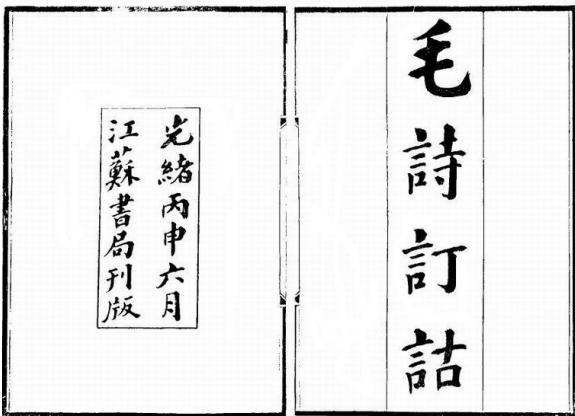 毛詩訂詁
光緒丙申六月
江蘇書局刊版